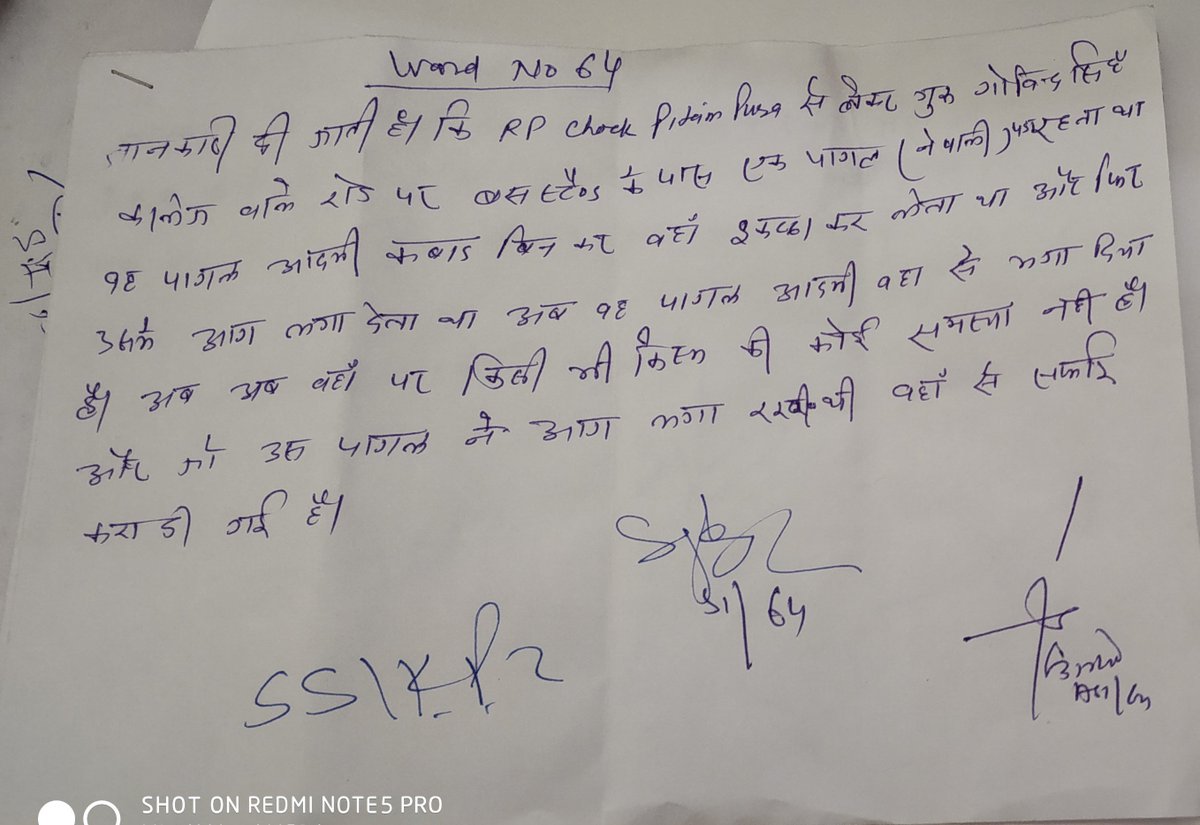 Ward No 64
जानकारी दी जाती है। कि RP Chock Pitam Pura से लेकर गुरू गोविन्द सिंह
कालेज वाले रोड पर बस स्टैण्ड के पास एक पागल (नेपाली) रहता था
वह पागल आदमी कबाड बिन कर वहाँ इकठ्ठा कर लेता था और फिर
उसमे आग लगा देता था अब वह पागल आदमी वहा से भगा दिया
है। अब अब वहाँ पर किसी भी किस्म की कोई समस्या नही है।
और जो उस पागल ने आग लगा रखी थी वहाँ से सफाई
करा दी गई है।
SI/64
SSI K.P.Z
ASI
SHOT ON REDMI NOTE5 PRO